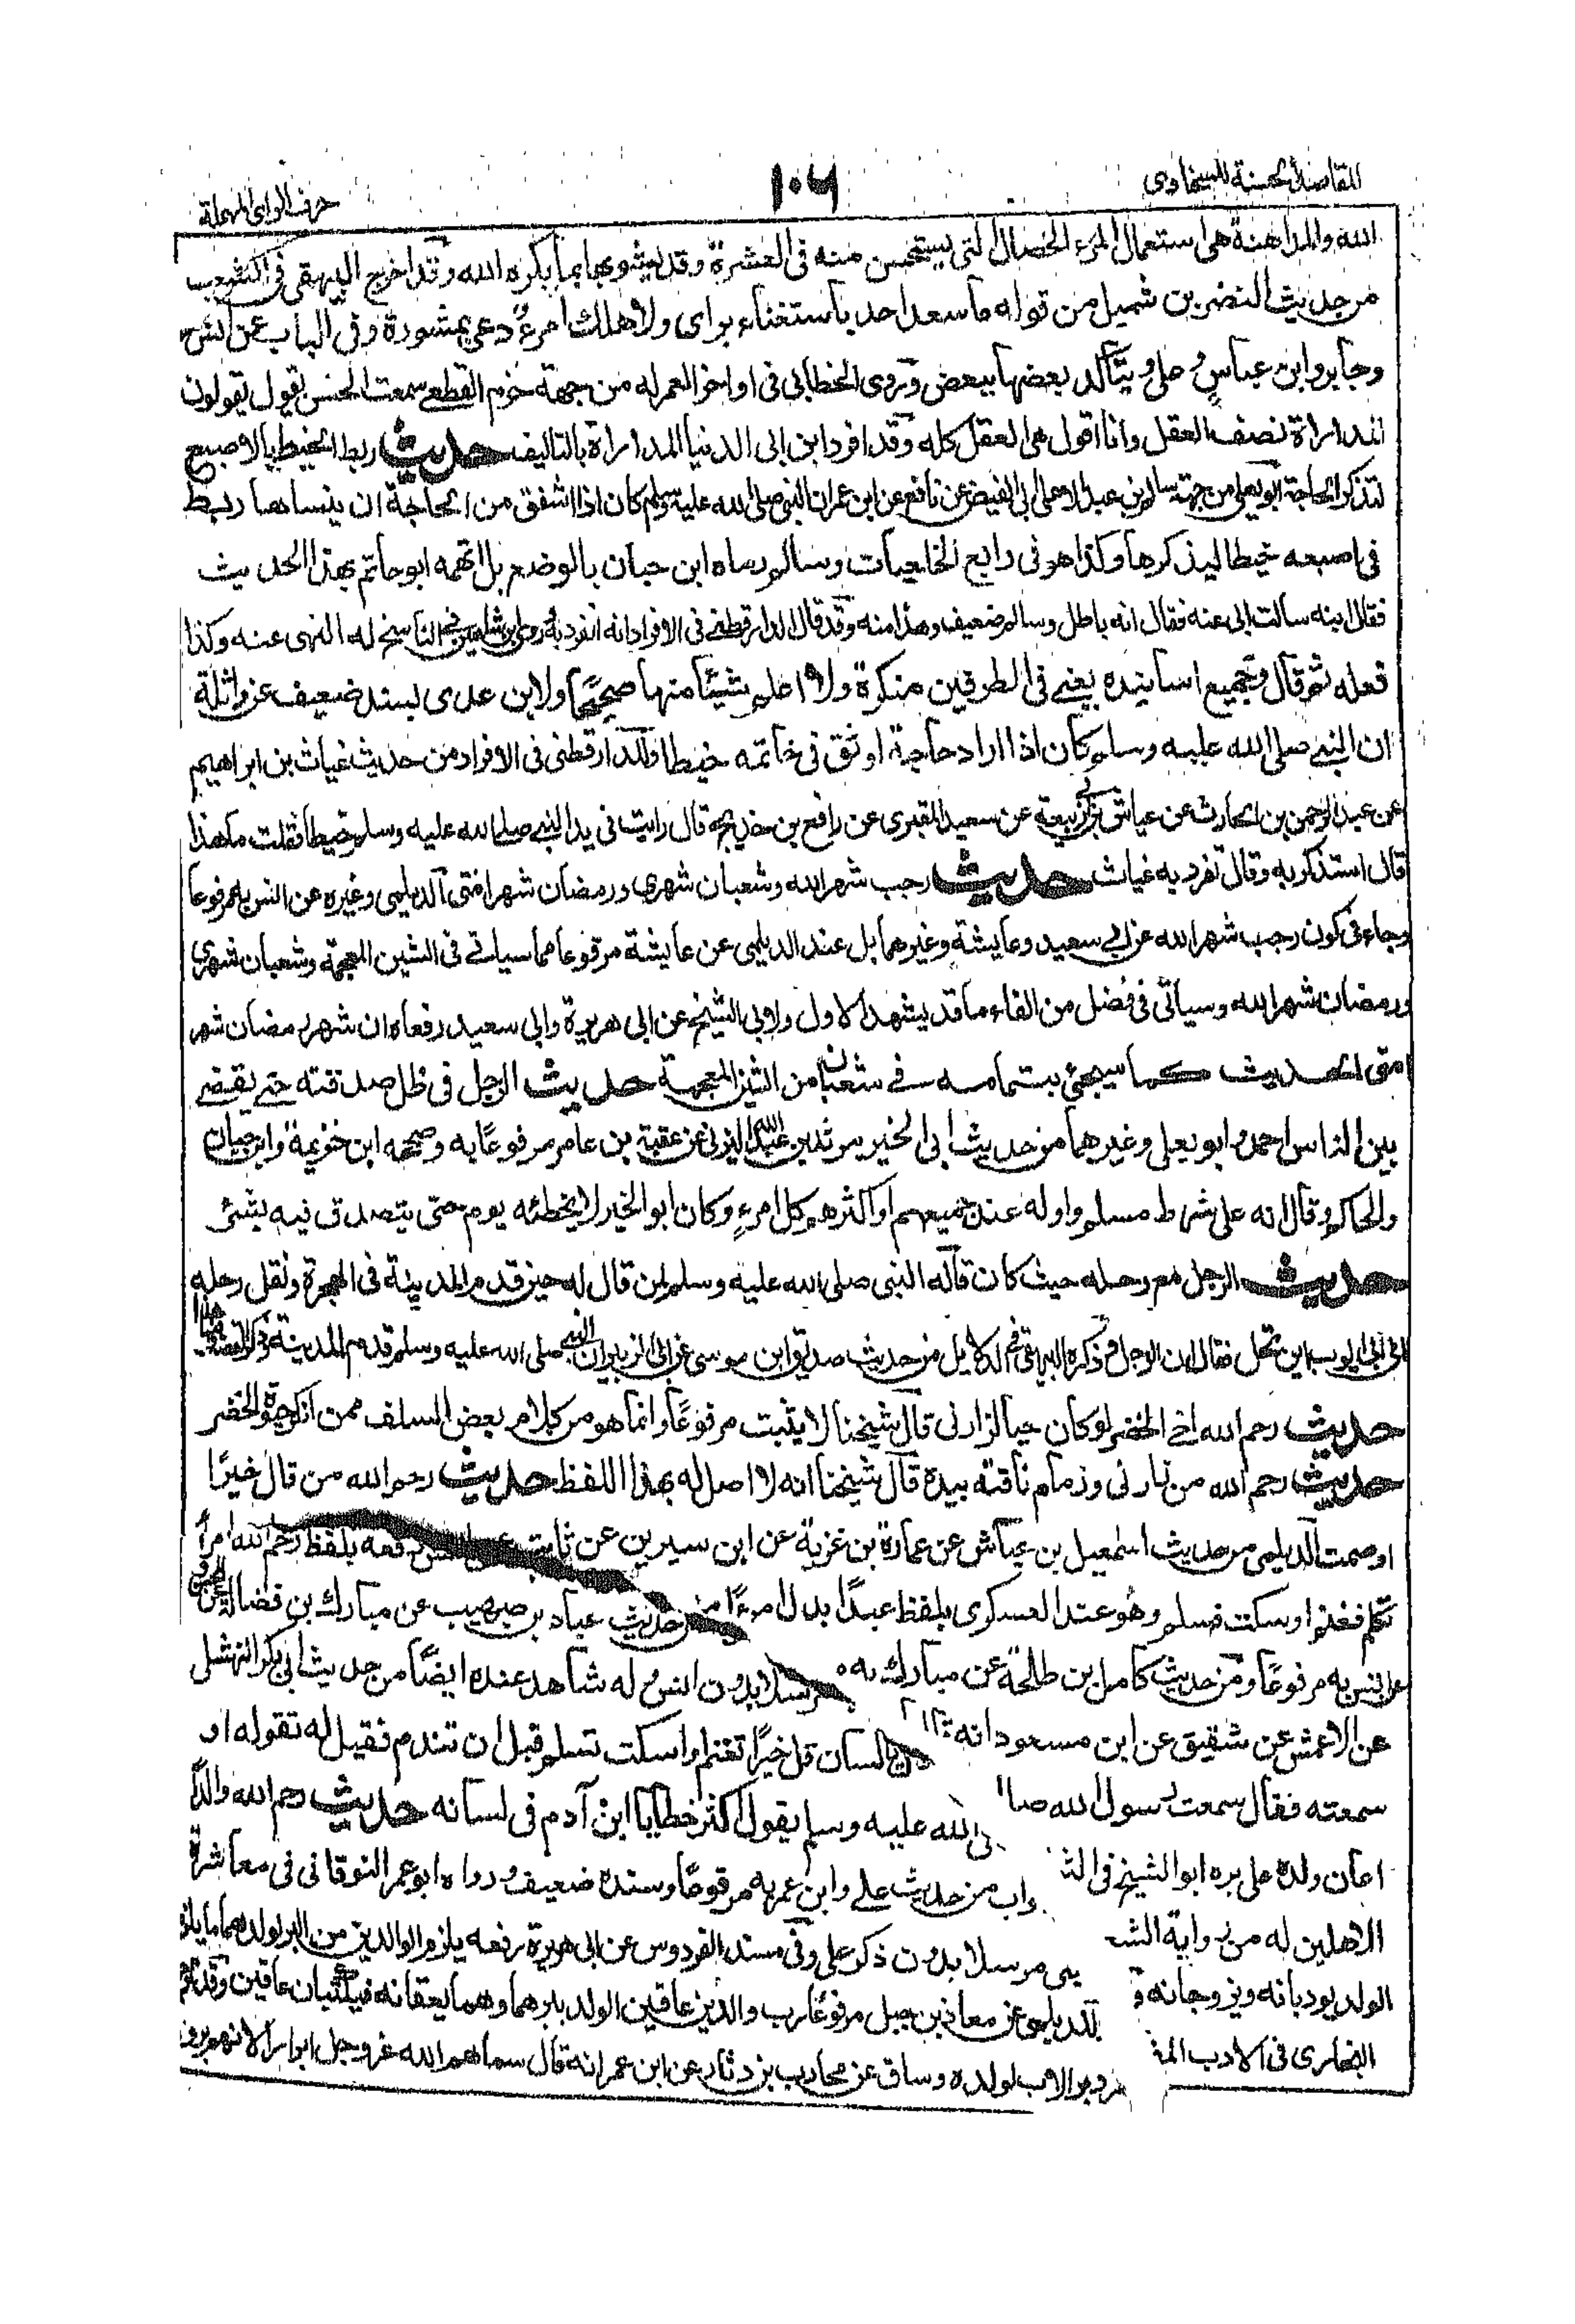 المقاصد الحسنة للسخاوى
١٠٦
حرف الراى المهملة
الله والمداهنة هى استعمال المرء الخصال التى يستحسن منه فى العشرة وقد يشوبها بما يكره الله وقد اخرج البيهقى فى الشعب
من حديث النضر بن شميل من قوله ما سعد احد باستغناء براى ولا هلك امرء دعى بمشورة وفى الباب عن انس
وجابر وابن عباس وعلى ويتأكد بعضها ببعض وروى الخطابى فى اواخر العمر له من جهة حزم القطعى سمعت الحسن يقول يقولون
المداراة نصف العقل وانا اقول هى العقل كله وقد افرد ابن ابى الدنيا المداراة بالتاليف حديث ربط الخيط بالاصبع
لتذكر الحاجة ابو يعلى من جهة سالم بن عبد الاعلى ابى الفيض عن نافع عن ابن عمران النبى صلى الله عليه وسلم كان اذا اشفق من الحاجة ان ينساها ربط
فى اصبعه خيطا ليذكرها وكذا هو فى رابع الخلعيات وسالم رماه ابن حبان بالوضع بل اتهمه ابو حاتم بهذا الحديث
فقال ابنه سالت ابى عنه فقال انه باطل وسالم ضعيف وهذا منه وقد قال الدارقطنى فى الافراد انه تفرد به وروى ابن شاهين فى الناسخ له النهى عنه وكذا
فعله ثم قال وجميع اسانيده يعنى فى الطرفين منكرة ولا اعلم شيئا منها صحيحا ولابن عدى بسند ضعيف عن واثلة
ان النبى صلى الله عليه وسلم كان اذا اراد حاجة اوثق فى خاتمه خيطا وللدارقطنى فى الافراد من حديث غياث بن ابراهيم
عن عبد الرحمن بن الحارث عن عياش بن ابى ربيعة عن سعيد المقبرى عن رافع بن خديج قال رايت فى يد النبى صلى الله عليه وسلم خيطا فقلت ما هذا
قال استذكر به وقال تفرد به غياث حديث رجب شهر الله وشعبان شهرى ورمضان شهر امتى الديلمى وغيره عن انس به مرفوعا
وجاء فى كون رجب شهر الله عن ابى سعيد وعايشة وغيرهما بل عند الديلمى عن عايشة مرفوعا مما سياتى فى الشين المعجمة وشعبان شهرى
ورمضان شهر الله وسياتى فى فضل من الفاء ما قد يشهد للاول ولابى الشيخ عن ابى هريرة وابى سعيد رفعاه ان شهر رمضان شهر
امتى الحديث كما سيجئ بتمامه فى شعبان من الشين المعجمة حديث الرجل فى ظل صدقته حتى يقضى
بين الناس احمد وابو يعلى وغيرهما من حديث ابى الخير مرثد بن عبد الله اليزنى عن عقبة بن عامر مرفوعا به وصححه ابن خزيمة وابن حبان
والحاكم وقال انه على شرط مسلم واوله عند جميعهم او اكثرهم كل امرء وكان ابو الخير لا يخطئه يوم حتى يتصدق فيه بشئ
حديث الرجل مع رحله حيث كان قاله النبى صلى الله عليه وسلم لمن قال له حين قدم المدينة فى الهجرة ونقل رحله
الى ابى ايوب اين تحل فقال ان الرجل وذكره البيهقى فى الدلايل من حديث صديق ابن موسى عن ابن الزبير ان النبى صلى الله عليه وسلم قدم المدينة فذكر القصة وفيها هذا
حديث رحم الله اخى الخضر لو كان حيا لزارنى قال شيخنا لا يثبت مرفوعا وانما هو من كلام بعض السلف ممن انكر حيوة الخضر
حديث رحم الله من زارنى وزمام ناقته بيده قال شيخنا انه لا اصل له بهذا اللفظ حديث رحم الله من قال خيرا
او صمت الديلمى من حديث اسمعيل بن عياش عن عمارة بن غزية عن ابن سيرين عن ثابت عن انس رفعه بلفظ رحم الله امرأ
تكلم فغنم او سكت فسلم وهو عند العسكرى بلفظ عبدا بدل امرءا من حديث عباد بن صهيب عن مبارك بن فضالة عن الحسن
عن انس به مرفوعا ومن حديث كامل بن طلحة عن مبارك به مرسلا بدون انس وله شاهد عنده ايضا من حديث ابى بكر النهشلى
عن الاعمش عن شقيق عن ابن مسعود انه يا لسان قل خيرا تغنم او اسكت تسلم قبل ان تندم فقيل له تقوله او
سمعته فقال سمعت رسول الله صلى الله عليه وسلم يقول اكثر خطايا ابن آدم فى لسانه حديث رحم الله والدا
اعان ولده على بره ابو الشيخ فى الثواب من حديث على وابن عمر به مرفوعا وسنده ضعيف ورواه ابو عمر النوقانى فى معاشرة
الاهلين له من رواية الشعبى مرسلا بدون ذكر على وفى مسند الفردوس عن ابى هريرة رفعه يلزم الوالدين من البر لولدهما ما يلزم
الولد يودبانه ويزوجانه و للديلمى عن معاذ بن جبل مرفوعا رب والدين عاقين الولد يبرهما وهما يعقانه فيكتبان عاقين وقد
البخارى فى الادب المفرد بر الاب لولده وساق عن محارب بن دثار عن ابن عمر انه قال سماهم الله عز وجل ابرارا لانهم بروا